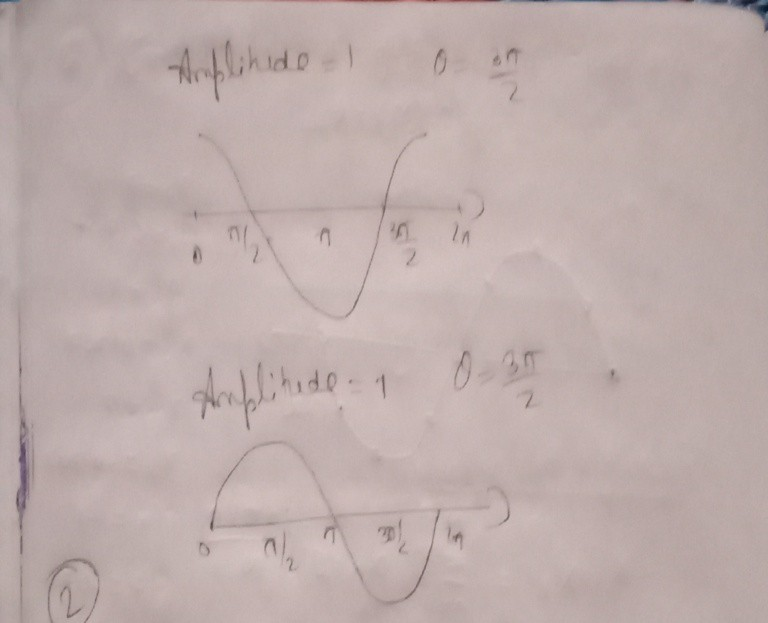 Amplitude = 1 θ = 3π/2
0 π/2 π 3π/2 2π
Amplitude = 1 θ = 3π/2
0 π/2 π 3π/2 2π
2